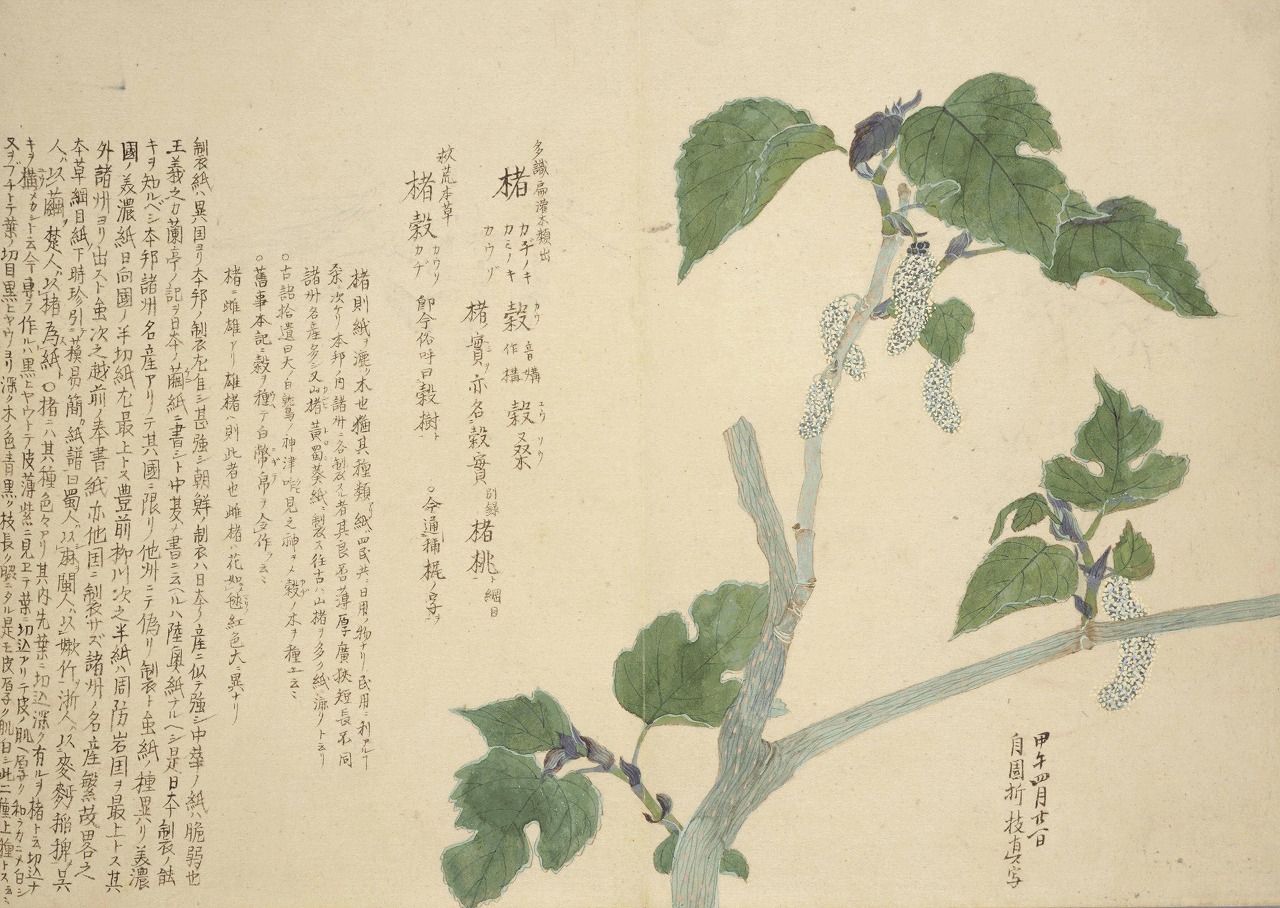 甲午四月廿一日
自園折枝真写
多識扁灌木類出
楮 カヂノキ カミノキ カウゾ 穀 カウ 音媾 作構 穀桑 ユウ リウ
楮ノ實 亦名穀實 別録 楮桃ト 綱目
救荒本草
楮穀 カウソ カヂ 即今俗呼曰穀樹ト ○今通稱梶ノ字ヲ
楮則紙ヲ漉ク木也猶其種類 紙ハ四民共ニ日用ノ物ナリ民用ニ利アルー
ノ本邦ノ内諸州ニ各製ス者其良否薄厚廣狭短長不同
諸州名産多シ又山楮黄蜀葵紙ニ製ス往古ハ山楮ヲ多ク紙漉リト云リ
○古語拾遺曰天ノ日鷲ノ神津咋見之神ヲ〆穀ノ木ヲ種ユ云〻
○舊事本記ニ穀ヲ種テ白幣帛ヲ令作ム云〻
楮ニ雌雄アリ 雄楮ハ則此者也 雌楮ハ花如毬紅色大ニ異ナリ
製紙ハ異国ヨリ本邦ノ製尤宜シ甚強シ朝鮮ノ製ハ日本ノ産ニ似テ強シ中華ノ紙ハ脆弱也
王義之カ蘭亭ノ記ヲ日本ノ繭紙ニ書シト中葊ノ書ニ云ヘルハ陸奥紙ナルヘシ是日本製ノ能
キヲ知ルベシ本邦諸州名産アリテ其國ニ限リ他州ニテ偽リ製ト虽紙ノ種異リ美濃
國ノ美濃紙日向國ノ半切紙尤最上トス豊前柳川次之半紙ハ周防岩国ヲ最上トス其
外諸州ヨリ出スト虽次之越前ノ奉書紙亦他国ニ製サズ諸州ノ名産繁故畧之
本草綱目紙下時珍引蘇易簡ノ紙譜曰蜀人ハ以麻閩人ハ以嫩竹浙人ハ以麥䴬稻稈呉
人ハ以繭楚人ハ以楮為紙ト ○楮ニハ其種色々アリ其内先葉ニ切込深ク有ルヲ楮ト云切込ナ
キヲ構メカシト云今専ラ作ルハ黒上ヤウトテ皮薄紫ニ見ヱテ葉ニ切込アリテ皮ノ肌ヘ厚ク和ラカニメ白シ
又ヲブチトテ葉ノ切目黒上ヤウヨリ深ク木ノ色青黒ク枝長ク